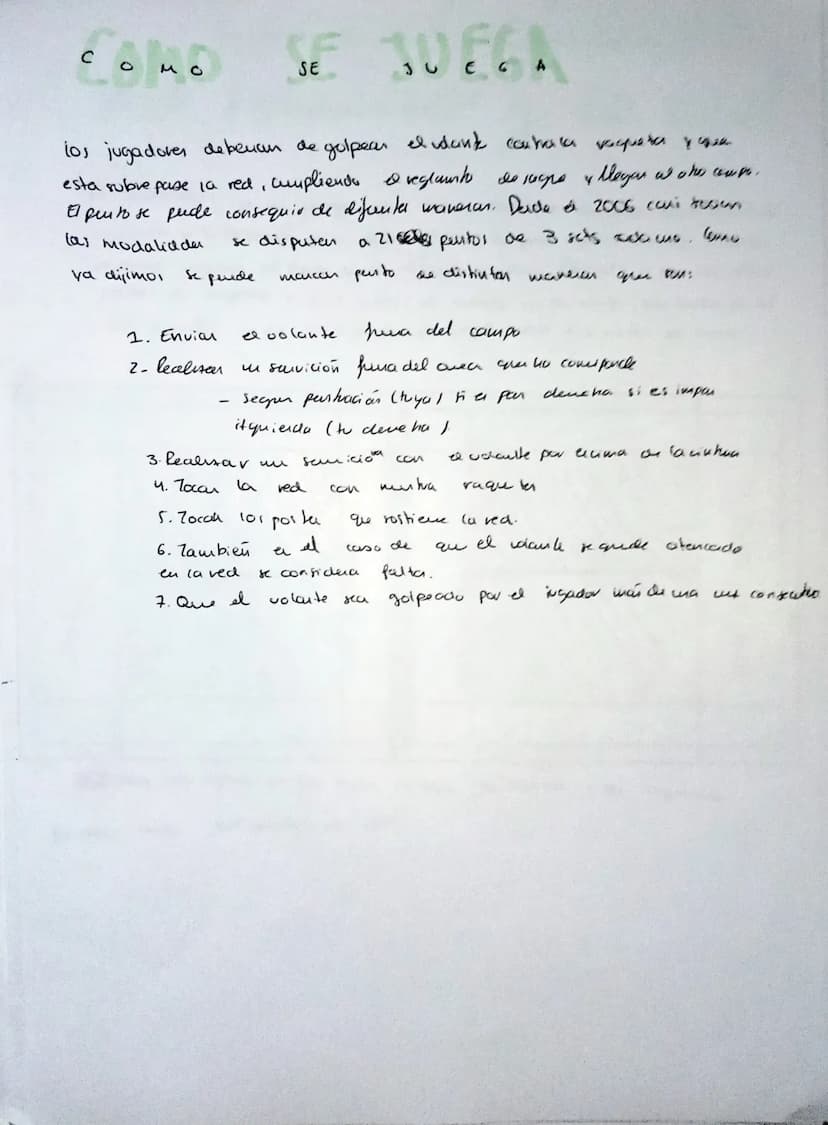 COMO SE JUEGA
C O M O SE J U E G A
los jugadores deberian de golpear el volante contra la raqueta y que
esta sobre pase la red, cumpliendo el reglamento de juego y llegar al otro campo.
El punto se puede conseguir de diferentes maneras. Desde el 2006 casi todas
las modalidades se disputan a 21 puntos de 3 sets maximo. Como
ya dijimos se puede marcar punto de distintas maneras que son:
1. Enviar el volante fuera del campo
2- Realizar un servición fuera del area que no corresponde
- Segun puntuación (tuya) si es par derecha si es impar
izquierda (tu derecha)
3. Realizar un servicio con el volante por encima de la cintura
4. Tocar la red con nuestra raqueta
5. Tocar los postes que sostiene la red.
6. También en el caso de que el volante se quede atancado
en la red se considera falta.
7. Que el volante sea golpeado por el jugador más de una vez consecutiva